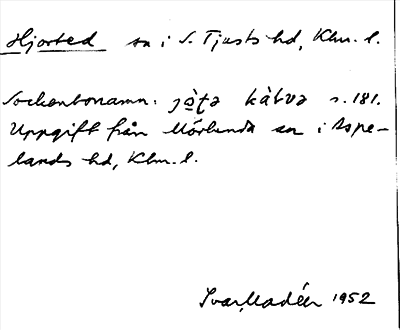 Hjorted sn i S. Tjusts hd, Klm. l.
Sockenbonamn: jö̀ta kàtvə s. 181.
Uppgift från Mörlunda sn i Aspe-
lands hd, Klm. l.
Ivar Modéer 1952